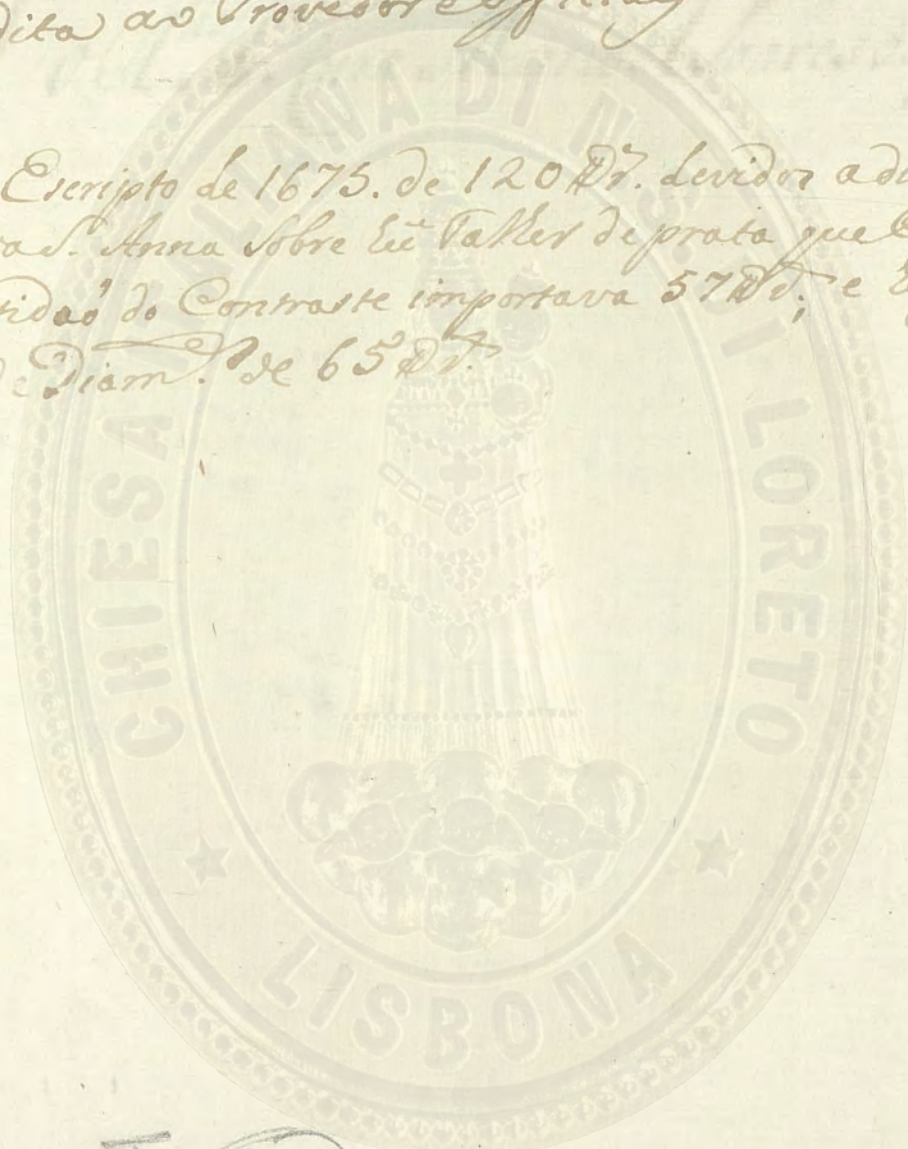 dita ao Provedor e Officiaes
Escripto de 1675. de 120 Dr. devidos a
S. Anna sobre hũ Talher de prata que
do Contraste importava 57 e
Diam. de 65
CHIESA ITALIANA DI N. S. DI LORETO
LISBONA